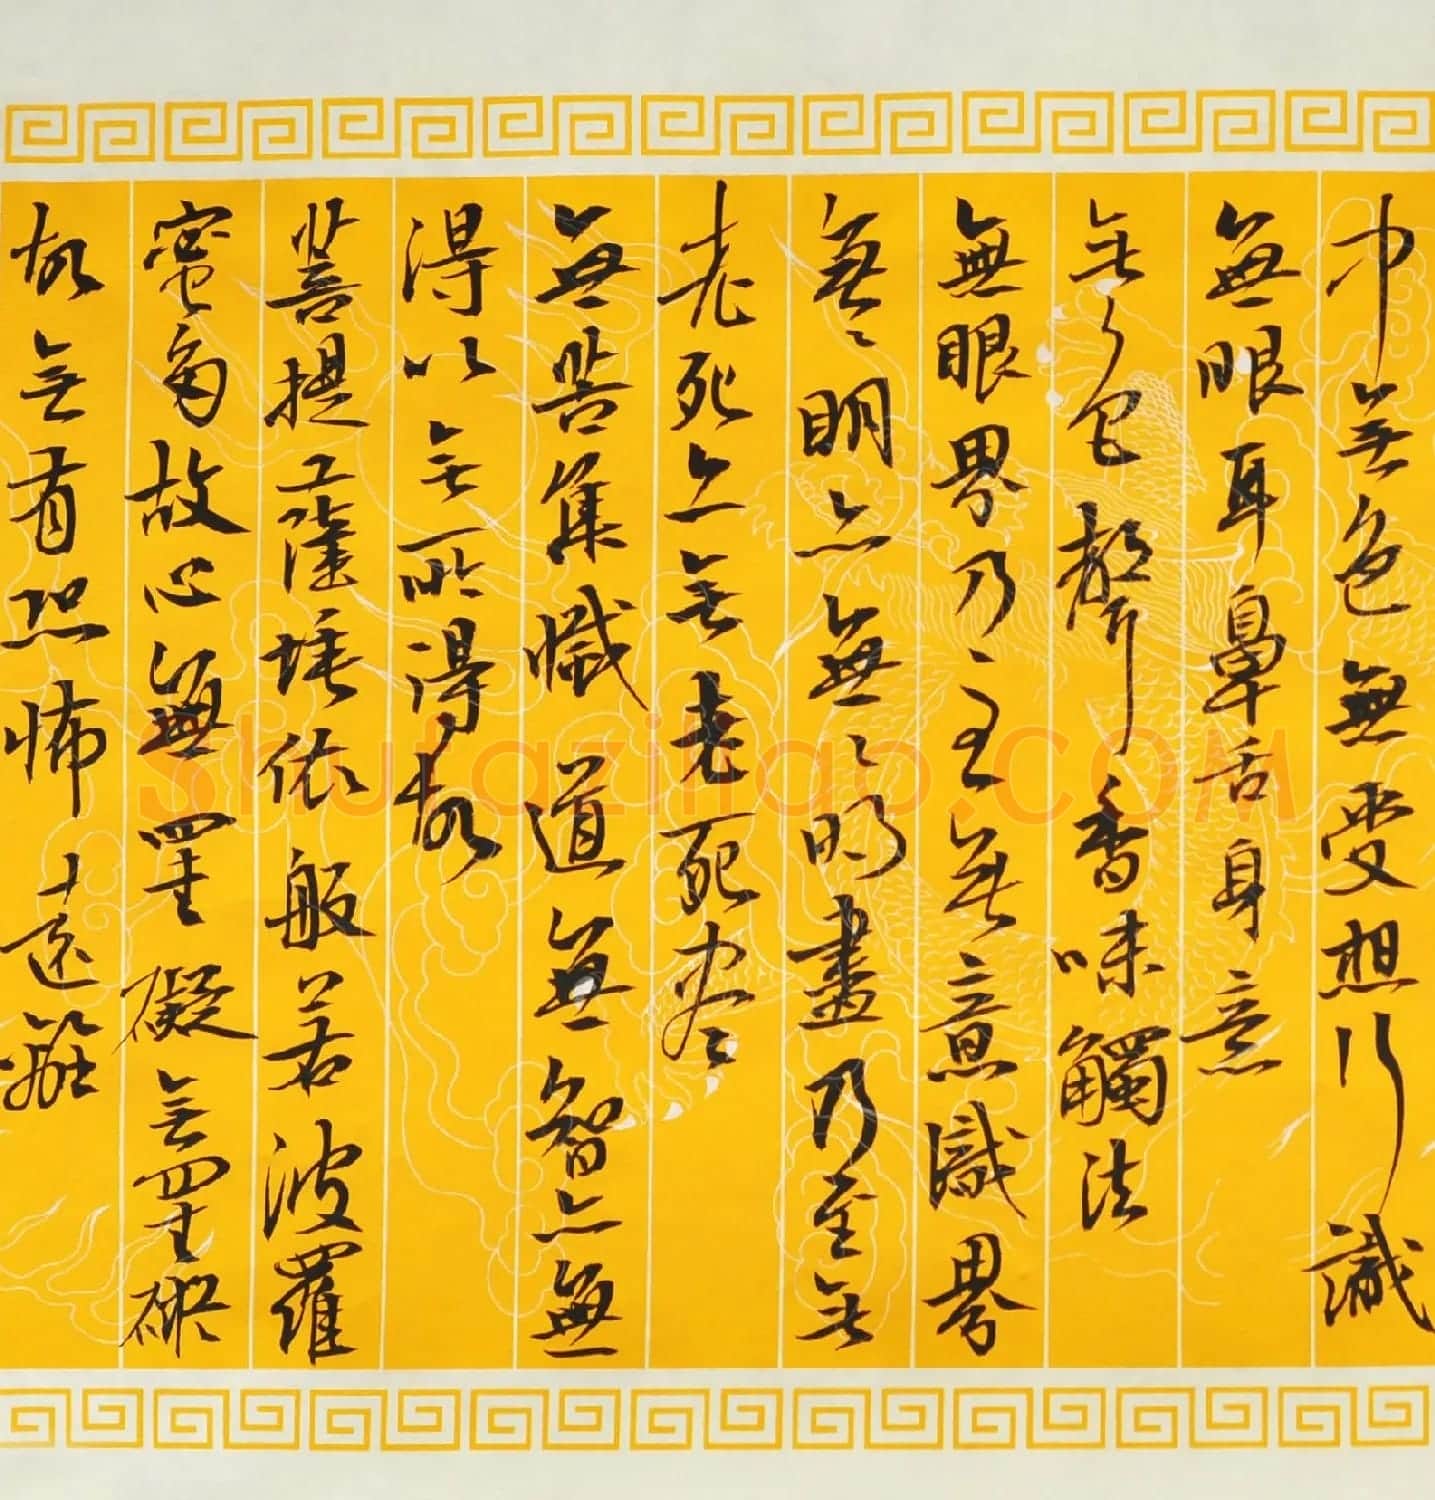 中無色無受想行識
無眼耳鼻舌身意
無色聲香味觸法
無眼界乃至無意識界
無〻明亦無〻明盡乃至無
老死亦無老死尽
無苦集滅道無智亦無
得以無所得故
菩提薩埵依般若波羅
蜜多故心無罣礙無罣礙
故無有恐怖遠離
shufaziliao.com